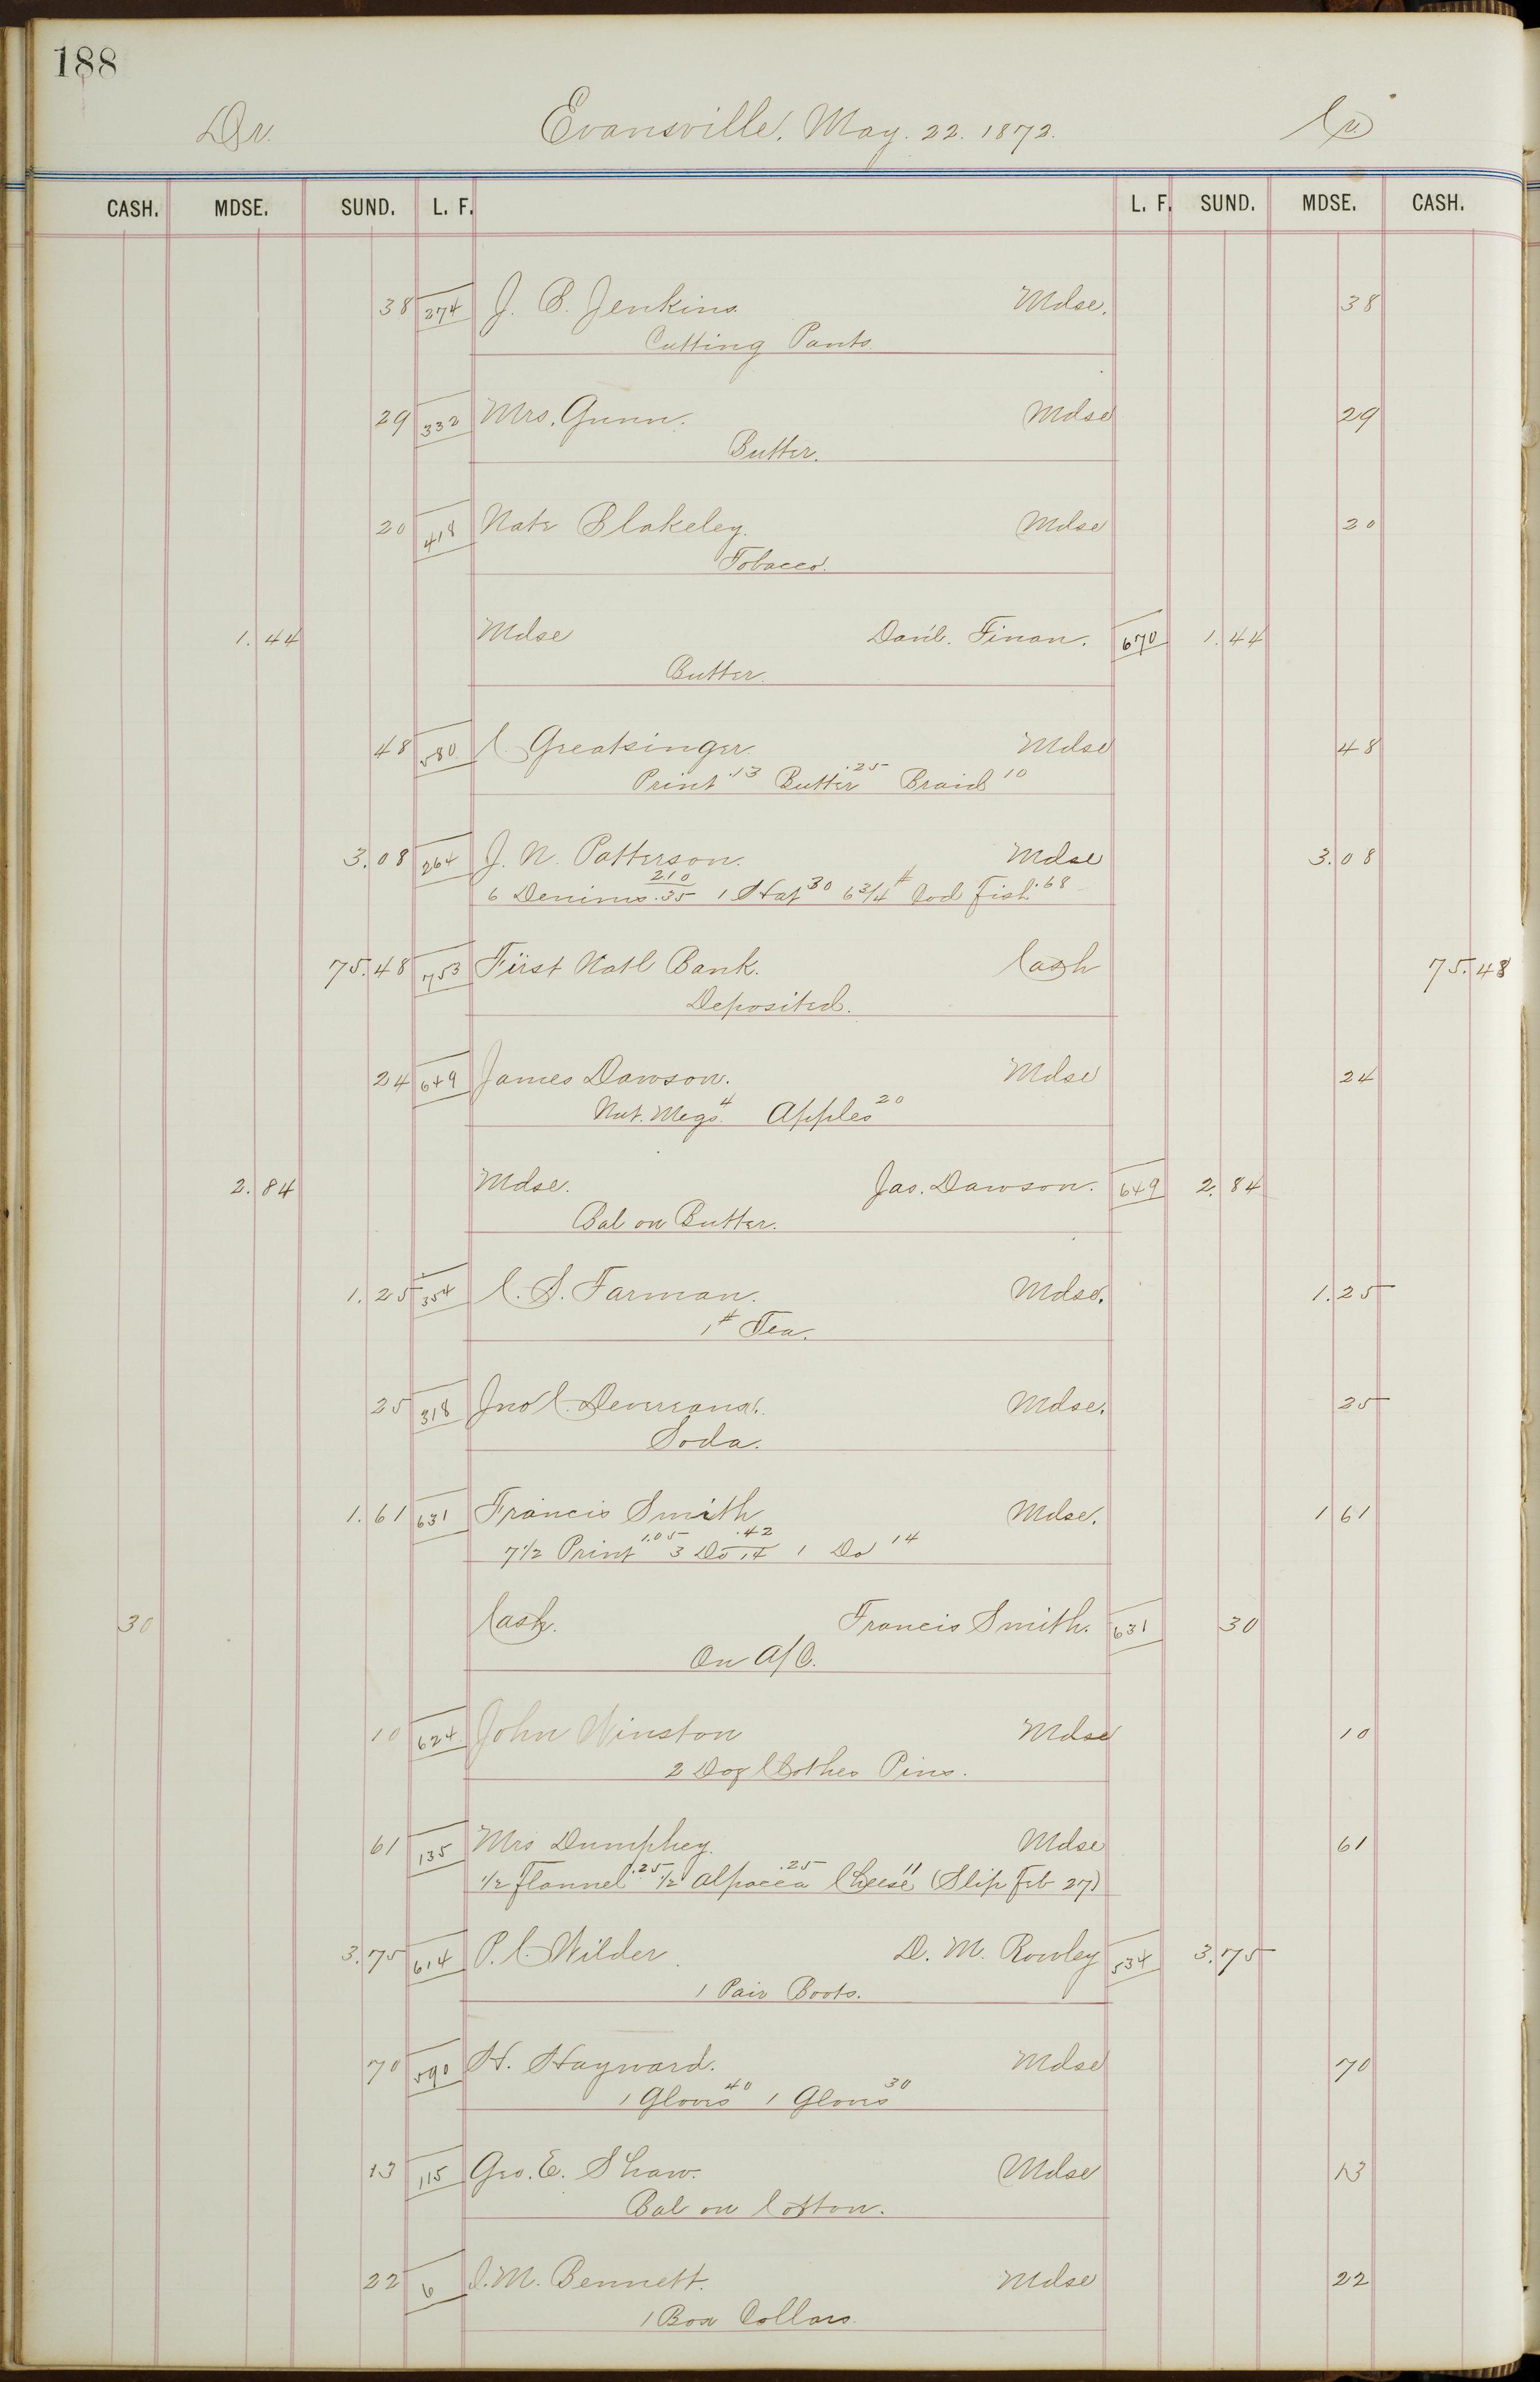 188
Dr. Evansville, May. 22. 1872. Cr
CASH. MDSE. SUND. L. F. L. F. SUND. MDSE. CASH.
38 274 J. B. Jenkins Mdse. 38
Cutting Pants
29 332 Mrs. Gunn. Mdse 29
Butter.
20 418 Nate Blakeley. Mdse 20
Tobacco.
1.44 Mdse Dan'l. Finan. 670 1.44
Butter.
48 580 C. Greatsinger Mdse 48
Print .13 Butter .25 Braid 10
3.08 264 J. N. Patterson. Mdse 3.08
6 Denims .35 2.10 1 Hat 30 6 3/4 # Cod Fish .68
75.48 753 First Natl Bank. Cash 75.48
Deposited.
24 649 James Dawson. Mdse 24
Nut. Megs. 4 Apples 20
2.84 Mdse. Jas. Dawson. 649 2.84
Bal on Butter.
1.25 354 C. S. Farman. Mdse. 1.25
1 # Tea.
25 318 Jno C. Mdse. 25
Soda.
1.61 631 Francis Smith Mdse. 1 61
7 1/2 Print 1.05 3 Do 14 .42 1 Do 14
30 Cash. Francis Smith. 631 30
On A/C.
10 624 John Winston Mdse 10
2 Doz Clothes Pins.
61 135 Mrs Dumphey. Mdse 61
1/2 Flannel .25 1/2 Alpacca .25 Cheese 11 (Slip Feb 27)
3.75 614 P. C. Wilder D. M. Rowley 534 3.75
1 Pair Boots.
70 590 H. Hayward. Mdse 70
1 Gloves 40 1 Gloves 30
13 115 Geo. E. Shaw. Mdse 13
Bal on Cotton.
22 6 I. M. Bennett. Mdse 22
1 Box Collars